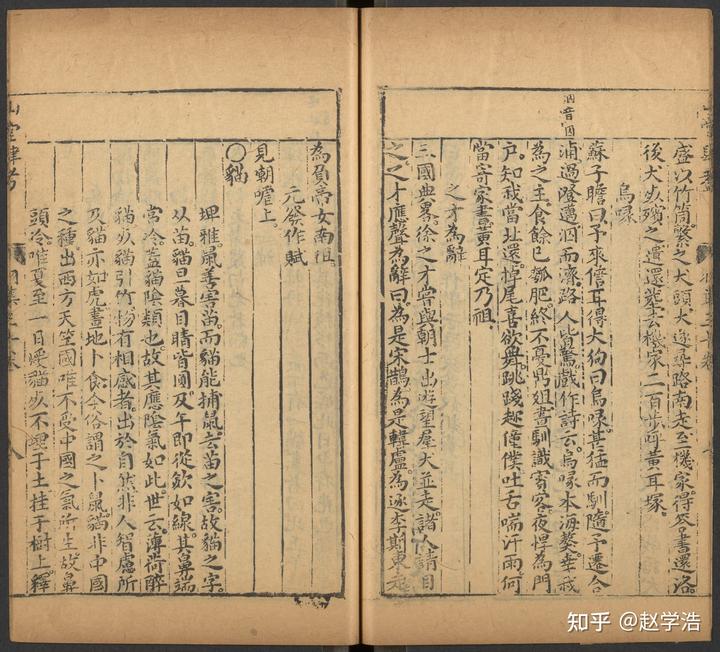 盛以竹筒繫之犬頭犬逐尋路南走至機家得答書還洛
後犬死殯之遣還葬去機家二百步呼黃耳塚
烏喙
蘇子瞻曰予來儋耳得犬狗曰烏喙甚猛而馴隨予遷合
泅音囚
浦過澄邁泅而濟路人皆驚戲作詩云烏喙本海獒幸我
為之主食餘已瓠肥終不憂鼎俎晝馴識賓客夜悍為門
戶知我當北還掉尾喜欲舞跳踐趁僮僕吐舌喘汗雨何
當寄家書黃耳定乃祖
之才為辭
三國典畧徐之才嘗與朝士出遊望羣犬並走諸人請目
之之才應聲為辭曰為是宋鵲為是韓盧為逐李斯東走
為負帝女南徂
元發作賦
見朝嚾上
○貓
埤雅鼠善害苗而貓能捕鼠去苗之害故貓之字
从苗貓旦暮目睛皆圓及午即從歛如線其鼻端
常冷蓋貓陰類也故其應陰氣如此世云薄荷醉
貓死貓引竹物有相感者出於自然非人智慮所
及貓亦如虎畫地卜食今俗謂之卜鼠貓非中國
之種出西方天竺國唯不受中國之氣所生故鼻
頭冷唯夏至一日煖貓死不埋于土挂于樹上釋
山堂肆考
八
知乎 @赵学浩